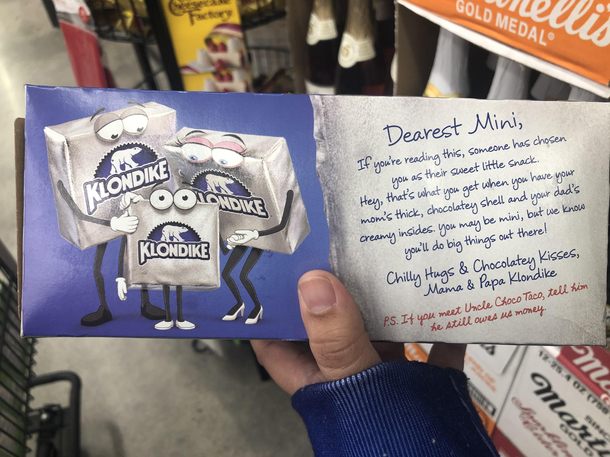 Cheesecake
Factory
GOLD MEDAL®
KLONDIKE
KLONDIKE
KLONDIKE
Dearest Mini,
If you're reading this, someone has chosen
you as their sweet little snack.
Hey, that's what you get when you have your
mom's thick, chocolatey shell and your dad's
creamy insides. You may be mini, but we know
you'll do big things out there!
Chilly Hugs & Chocolatey Kisses,
Mama & Papa Klondike
P.S. If you meet Uncle Choco Taco, tell him
he still owes us money